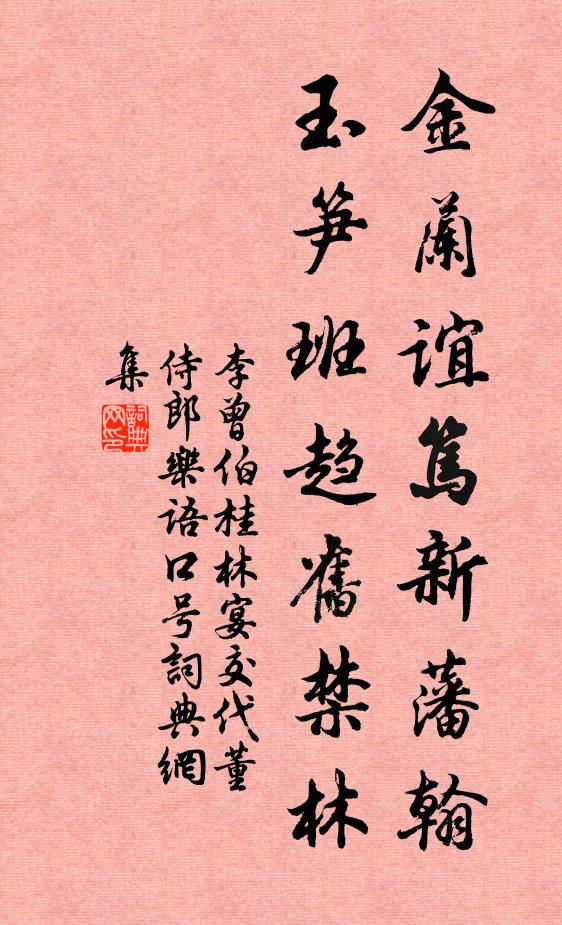 金蘭誼篤新藩翰
玉笋班趋舊禁林
李曾伯桂林宴交代董
侍郎樂語口号詞典網
集
詞典網印